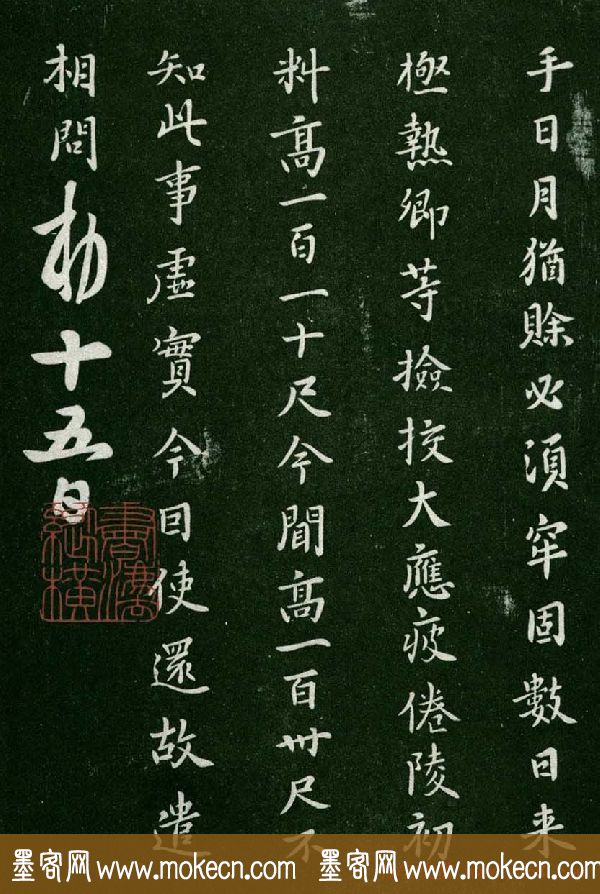 手日月猶賒必須牢固數日来
極熱卿等撿挍大應疲倦陵初
料高一百一十尺今聞高一百卅尺不
知此事虛實今因使還故遣
相問敕十五日
書法縱橫
墨客网 www.mokecn.com 墨客网 www.mokecn.com